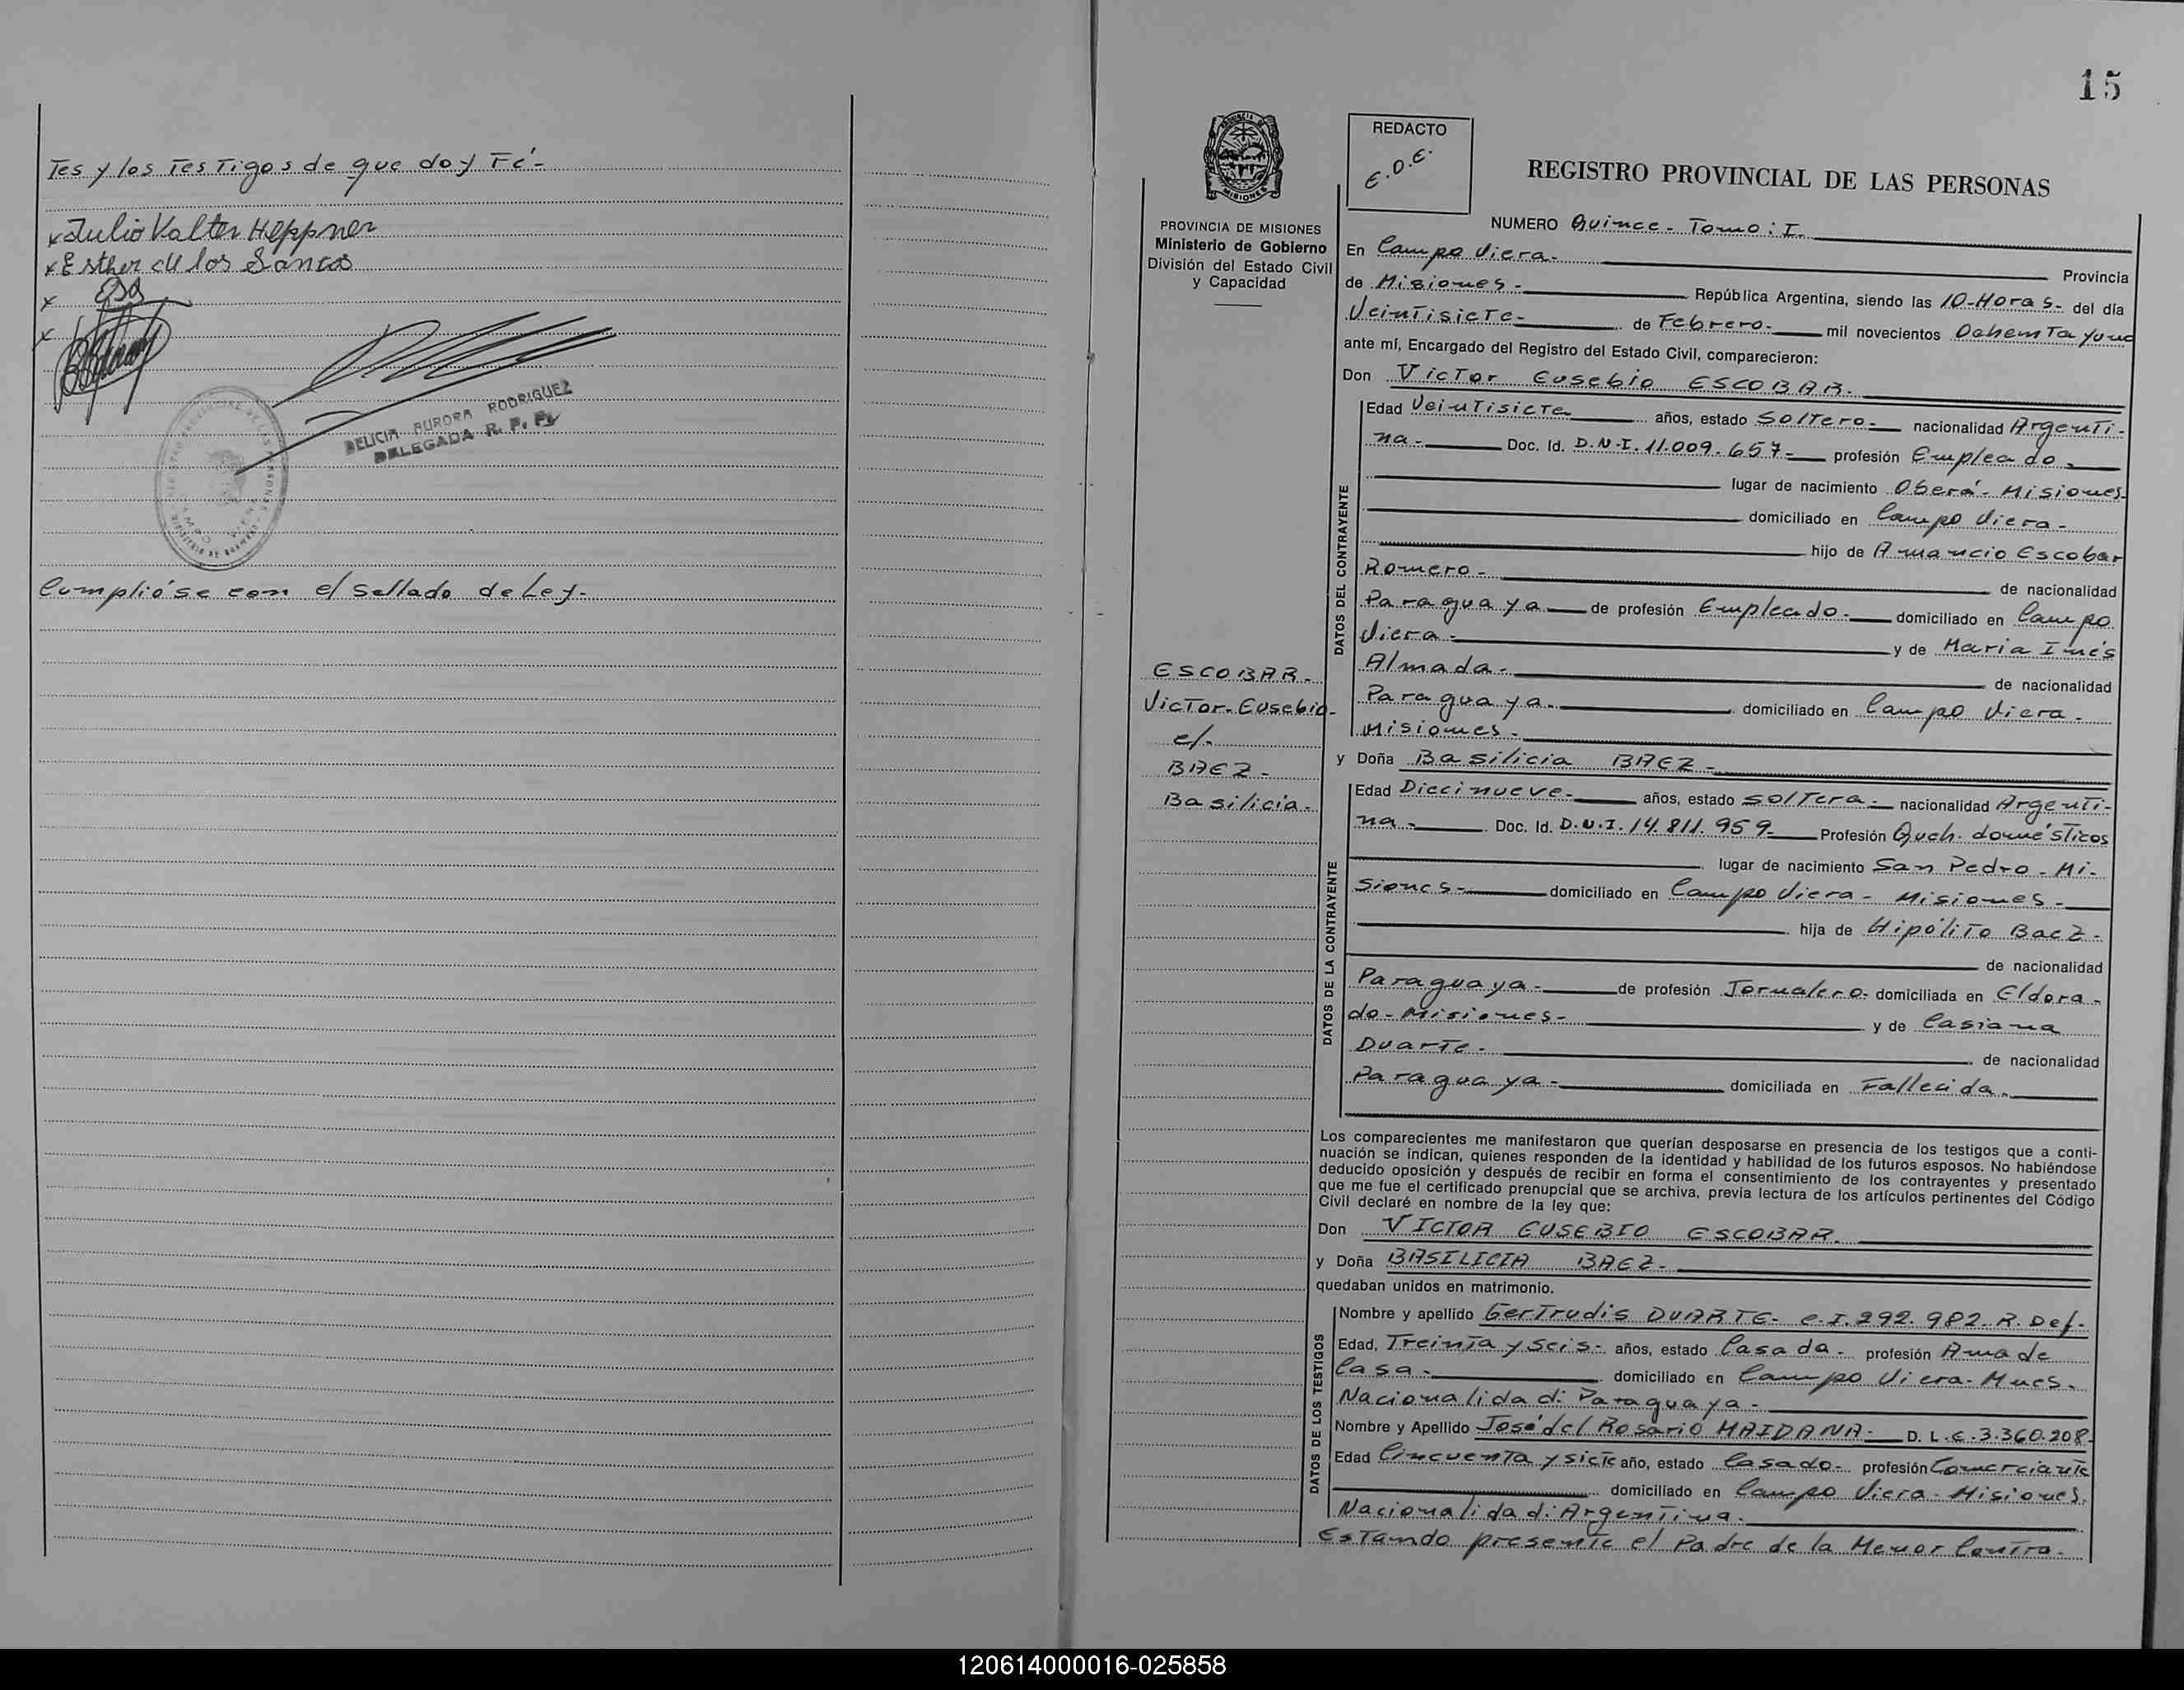 Tes y los Testigos de que doy Fé-
x Julio Valter Heppner
x Esther de los Santos
x
x
DELICIA AURORA RODRIGUEZ
DELEGADA R. P. P.
Cumplióse con el sellado de Ley-
15
PROVINCIA DE MISIONES
Ministerio de Gobierno
División del Estado Civil
y Capacidad
ESCOBAR-
Victor-Eusebio-
c/-
BAEZ-
Basilicia-
REDACTO
E.O.E.
REGISTRO PROVINCIAL DE LAS PERSONAS
NUMERO Quince- Tomo: I.
En Campo Viera- Provincia
de Misiones- República Argentina, siendo las 10-Horas- del día
Veintisiete- de Febrero- mil novecientos Ochenta y uno
ante mí, Encargado del Registro del Estado Civil, comparecieron:
Don Victor Eusebio ESCOBAR-
DATOS DEL CONTRAYENTE
Edad Veintisiete años, estado Soltero- nacionalidad Argenti-
na- Doc. Id. D.N.I. 11.009.657- profesión Empleado-
lugar de nacimiento Oberá- Misiones-
domiciliado en Campo Viera-
hijo de Amancio Escobar
Romero- de nacionalidad
Paraguaya de profesión Empleado- domiciliado en Campo
Viera- y de Maria Inés
Almada- de nacionalidad
Paraguaya- domiciliado en Campo Viera-
Misiones-
y Doña Basilicia BAEZ-
DATOS DE LA CONTRAYENTE
Edad Diecinueve- años, estado soltera- nacionalidad Argenti-
na- Doc. Id. D.N.I. 14.811.959- Profesión Queh. domésticos
lugar de nacimiento San Pedro- Mi-
siones- domiciliado en Campo Viera- Misiones-
hija de Hipólito Baez-
de nacionalidad
Paraguaya- de profesión Jornalero- domiciliada en Eldora-
do- Misiones- y de Casiana
Duarte- de nacionalidad
Paraguaya- domiciliada en Fallecida-
Los comparecientes me manifestaron que querían desposarse en presencia de los testigos que a conti-
nuación se indican, quienes responden de la identidad y habilidad de los futuros esposos. No habiéndose
deducido oposición y después de recibir en forma el consentimiento de los contrayentes y presentado
que me fue el certificado prenupcial que se archiva, previa lectura de los artículos pertinentes del Código
Civil declaré en nombre de la ley que:
Don VICTOR EUSEBIO ESCOBAR.
y Doña BASILICIA BAEZ-
quedaban unidos en matrimonio.
DATOS DE LOS TESTIGOS
Nombre y apellido Gertrudis DUARTE- C.I. 292.982 R. Def-
Edad, Treinta y Seis- años, estado Casada- profesión Ama de
Casa- domiciliado en Campo Viera- Mnes-
Nacionalidad: Paraguaya-
Nombre y Apellido José del Rosario MAIDANA- D. L.E. 3.360.208-
Edad Cincuenta y siete año, estado Casado- profesión Comerciante
domiciliado en Campo Viera- Misiones.
Nacionalidad: Argentina.
Estando presente el Padre de la Menor Contra-
120614000016-025858